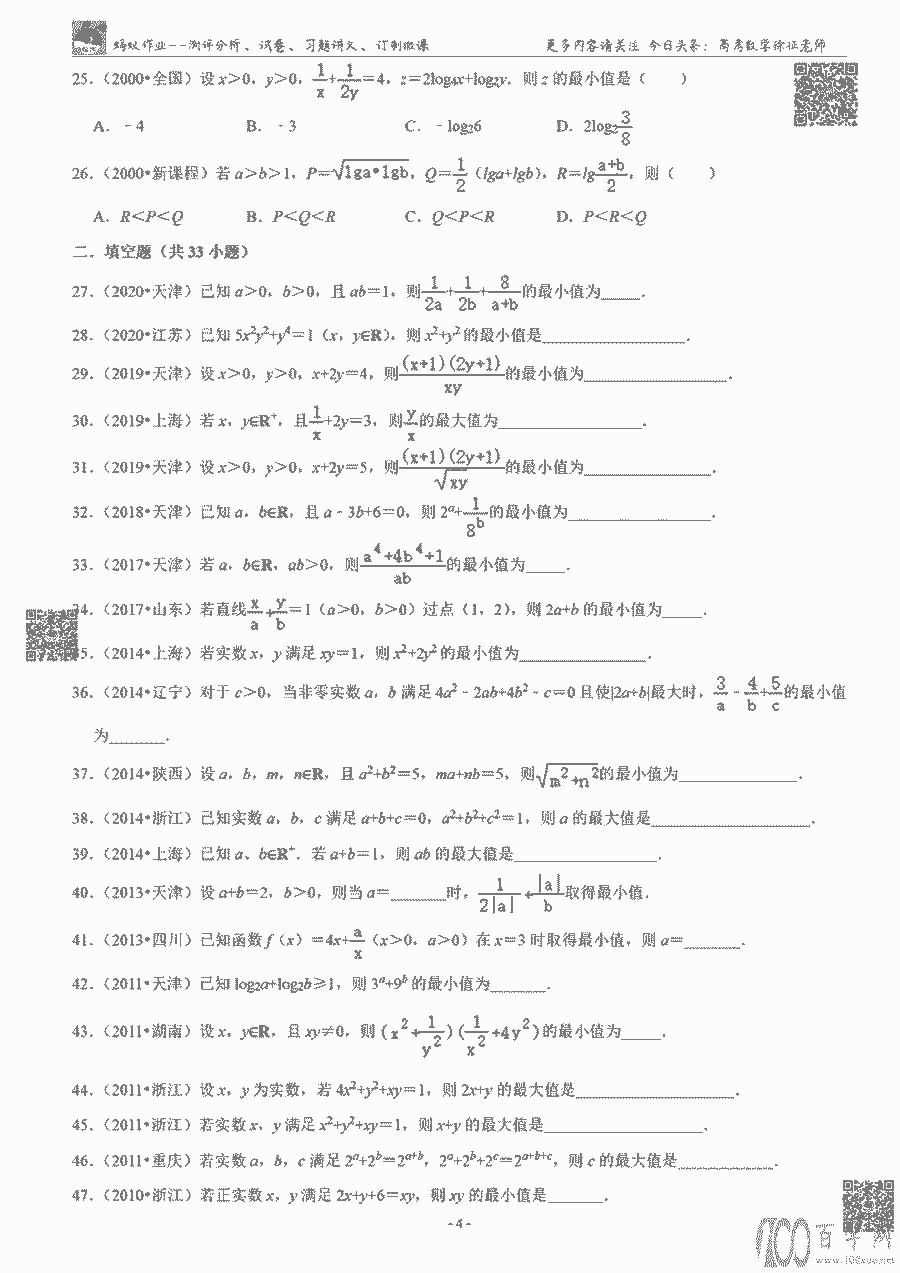 蚂蚁作业--测评分析、试卷、习题讲义、订制微课 更多内容请关注 今日头条：高考数学徐征老师
25.（2000•全国）设 x＞0，y＞0，1/x+1/2y＝4，z＝2log₄x+log₂y．则 z 的最小值是（ ）
A．﹣4 B．﹣3 C．﹣log₂6 D．2log₂3/8
26.（2000•新课程）若 a＞b＞1，P＝√lga•lgb，Q＝1/2（lga+lgb），R＝lg a+b/2，则（ ）
A．R＜P＜Q B．P＜Q＜R C．Q＜P＜R D．P＜R＜Q
二．填空题（共 33 小题）
27.（2020•天津）已知 a＞0，b＞0，且 ab＝1，则1/2a+1/2b+8/a+b的最小值为_____．
28.（2020•江苏）已知 5x²y²+y⁴＝1（x，y∈R），则 x²+y² 的最小值是_____．
29.（2019•天津）设 x＞0，y＞0，x+2y＝4，则(x+1)(2y+1)/xy的最小值为_____．
30.（2019•上海）若 x，y∈R⁺，且1/x+2y＝3，则y/x的最大值为_____．
31.（2019•天津）设 x＞0，y＞0，x+2y＝5，则(x+1)(2y+1)/√xy的最小值为_____．
32.（2018•天津）已知 a，b∈R，且 a﹣3b+6＝0，则 2ᵃ+1/8ᵇ的最小值为_____．
33.（2017•天津）若 a，b∈R，ab＞0，则a⁴+4b⁴+1/ab的最小值为_____．
34.（2017•山东）若直线x/a+y/b＝1（a＞0，b＞0）过点（1，2），则 2a+b 的最小值为_____．
5.（2014•上海）若实数 x，y 满足 xy＝1，则 x²+2y² 的最小值为_____．
36.（2014•辽宁）对于 c＞0，当非零实数 a，b 满足 4a²﹣2ab+4b²﹣c＝0 且使|2a+b|最大时，3/a﹣4/b+5/c的最小值
为_____．
37.（2014•陕西）设 a，b，m，n∈R，且 a²+b²＝5，ma+nb＝5，则√m²+n²的最小值为_____．
38.（2014•浙江）已知实数 a，b，c 满足 a+b+c＝0，a²+b²+c²＝1，则 a 的最大值是_____．
39.（2014•上海）已知 a、b∈R⁺．若 a+b＝1，则 ab 的最大值是_____．
40.（2013•天津）设 a+b＝2，b＞0，则当 a＝_____时，1/2|a|+|a|/b取得最小值．
41.（2013•四川）已知函数 f（x）＝4x+a/x（x＞0，a＞0）在 x＝3 时取得最小值，则 a＝_____．
42.（2011•天津）已知 log₂a+log₂b≥1，则 3ᵃ+9ᵇ 的最小值为_____．
43.（2011•湖南）设 x，y∈R，且 xy≠0，则 (x²+1/y²)(1/x²+4y²)的最小值为_____．
44.（2011•浙江）设 x，y 为实数，若 4x²+y²+xy＝1，则 2x+y 的最大值是_____．
45.（2011•浙江）若实数 x、y 满足 x²+y²+xy＝1，则 x+y 的最大值是_____．
46.（2011•重庆）若实数 a，b，c 满足 2ᵃ+2ᵇ＝2ᵃ⁺ᵇ，2ᵃ+2ᵇ+2ᶜ＝2ᵃ⁺ᵇ⁺ᶜ，则 c 的最大值是_____．
47.（2010•浙江）若正实数 x，y 满足 2x+y+6＝xy，则 xy 的最小值是_____．
- 4 -
100百学网